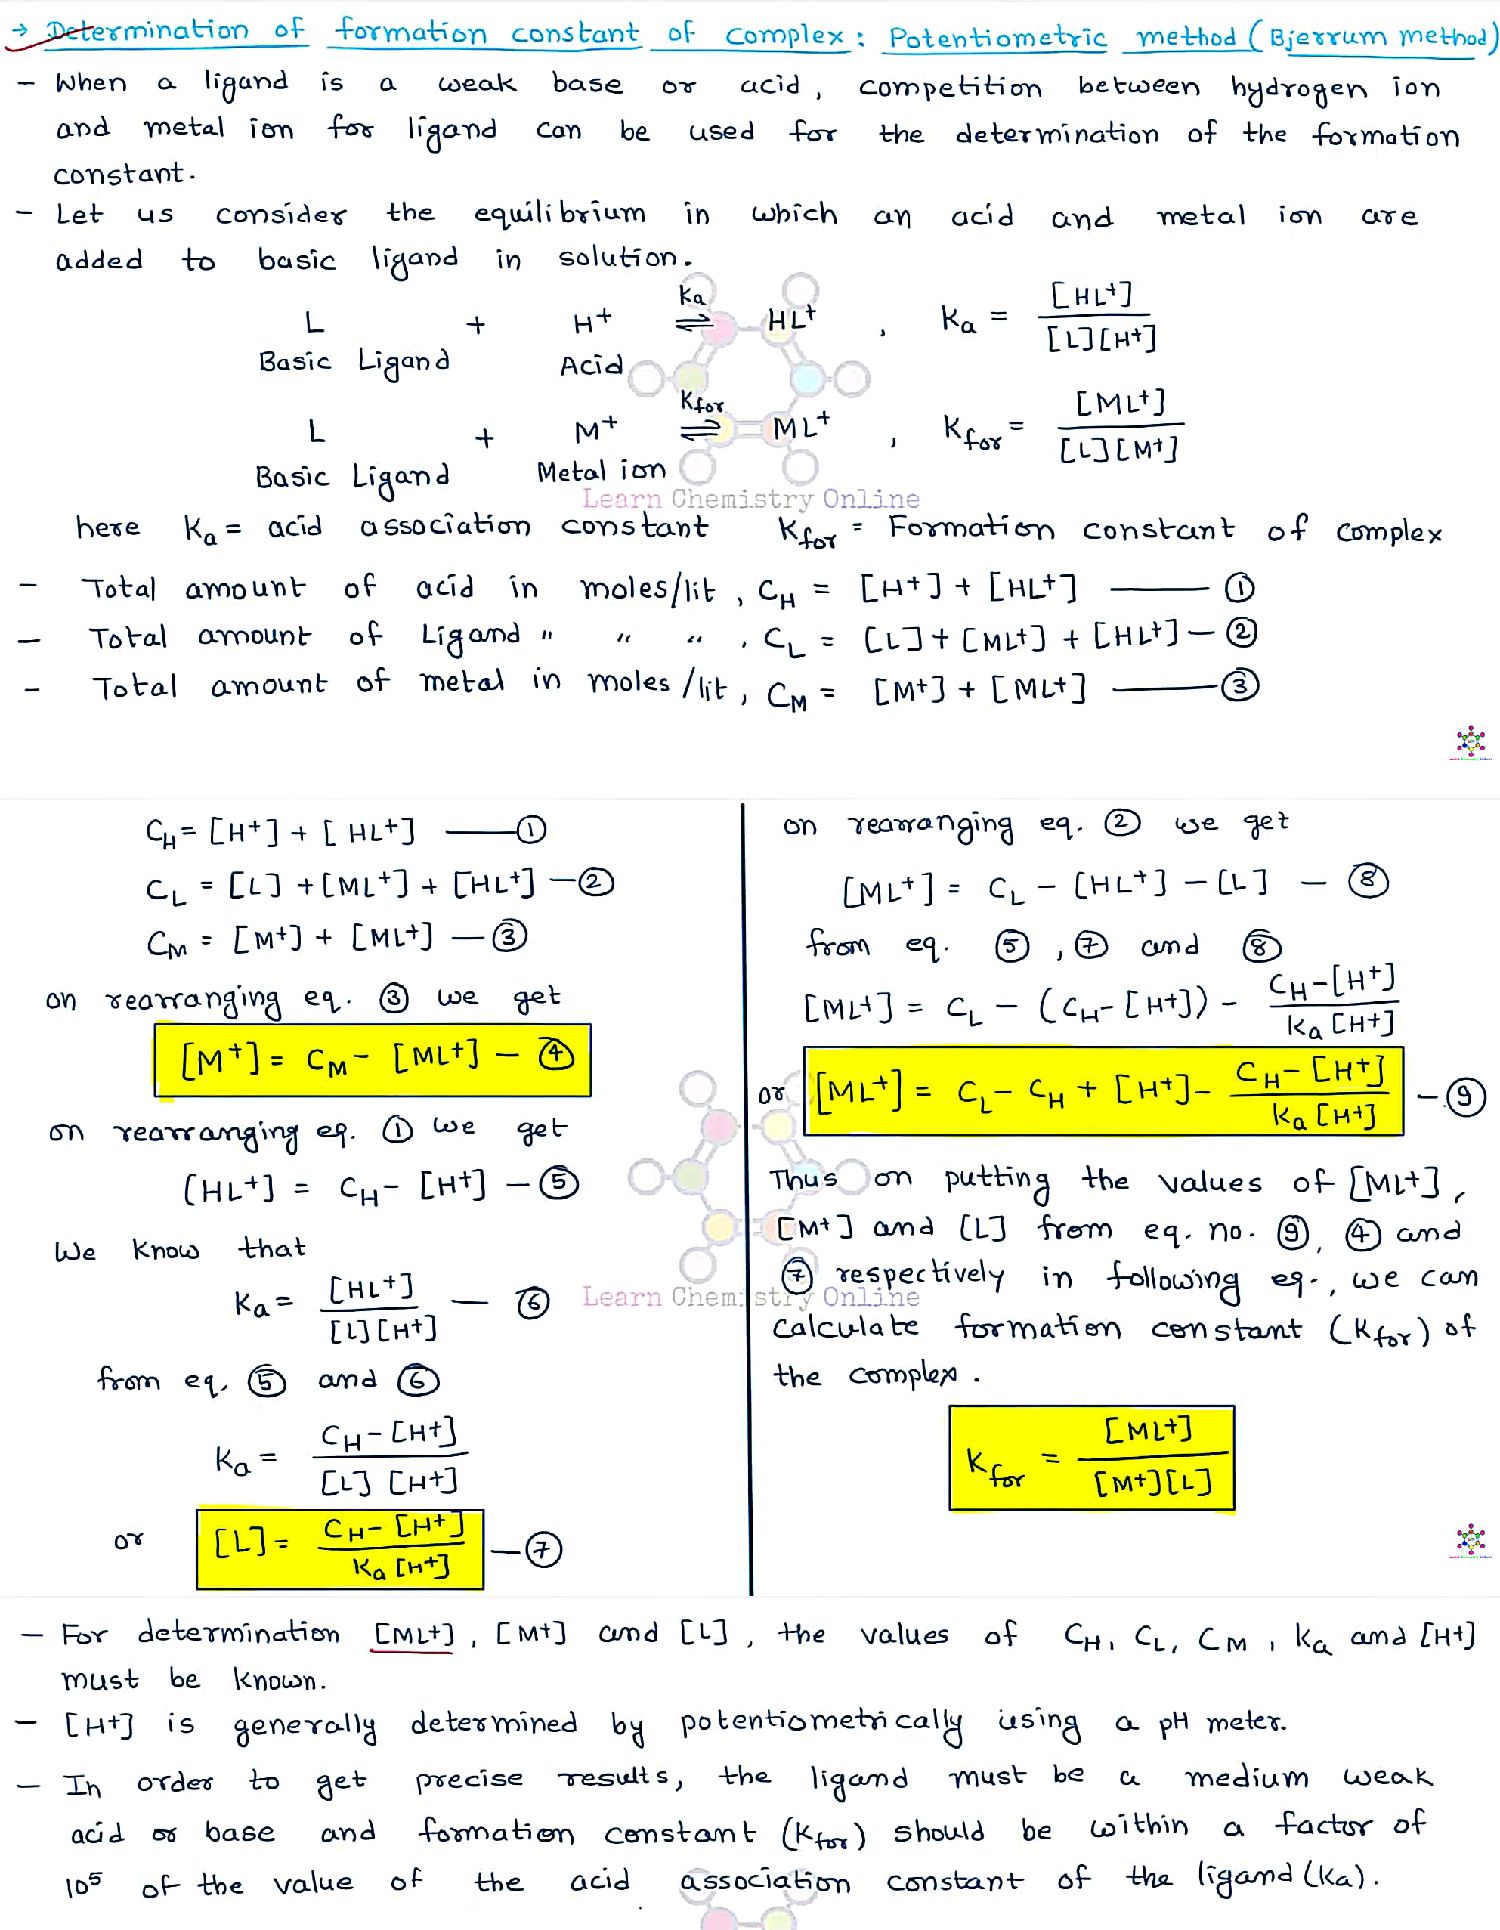 → Determination of formation constant of complex: Potentiometric method (Bjerrum method)
- When a ligand is a weak base or acid, competition between hydrogen ion
and metal ion for ligand can be used for the determination of the formation
constant.
- Let us consider the equilibrium in which an acid and metal ion are
added to basic ligand in solution.
L + H+ ⇌ HL+ , Ka = [HL+] / [L][H+]
Ka
Basic Ligand Acid
L + M+ ⇌ ML+ , Kfor = [ML+] / [L][M+]
Kfor
Basic Ligand Metal ion
Learn Chemistry Online
here Ka = acid association constant Kfor = Formation constant of complex
- Total amount of acid in moles/lit, CH = [H+] + [HL+] —— ①
- Total amount of Ligand " " " , CL = [L] + [ML+] + [HL+] — ②
- Total amount of metal in moles/lit, CM = [M+] + [ML+] —— ③
CH = [H+] + [HL+] —— ①
CL = [L] + [ML+] + [HL+] — ②
CM = [M+] + [ML+] — ③
on rearranging eq. ③ we get
[M+] = CM - [ML+] - ④
on rearranging eq. ① we get
[HL+] = CH - [H+] - ⑤
We know that
Ka = [HL+] / [L][H+] — ⑥
from eq. ⑤ and ⑥
Ka = CH - [H+] / [L] [H+]
or [L] = CH - [H+] / Ka [H+] — ⑦
on rearranging eq. ② we get
[ML+] = CL - [HL+] - [L] - ⑧
from eq. ⑤, ⑦ and ⑧
[ML+] = CL - (CH - [H+]) - CH - [H+] / Ka [H+]
or [ML+] = CL - CH + [H+] - CH - [H+] / Ka [H+] - ⑨
Thus on putting the values of [ML+],
[M+] and [L] from eq. no. ⑨, ④ and
⑦ respectively in following eq., we can
Learn Chemistry Online
calculate formation constant (Kfor) of
the complex.
Kfor = [ML+] / [M+][L]
- For determination [ML+], [M+] and [L], the values of CH, CL, CM, Ka and [H+]
must be known.
- [H+] is generally determined by potentiometrically using a pH meter.
- In order to get precise results, the ligand must be a medium weak
acid or base and formation constant (Kfor) should be within a factor of
10⁵ of the value of the acid association constant of the ligand (Ka).